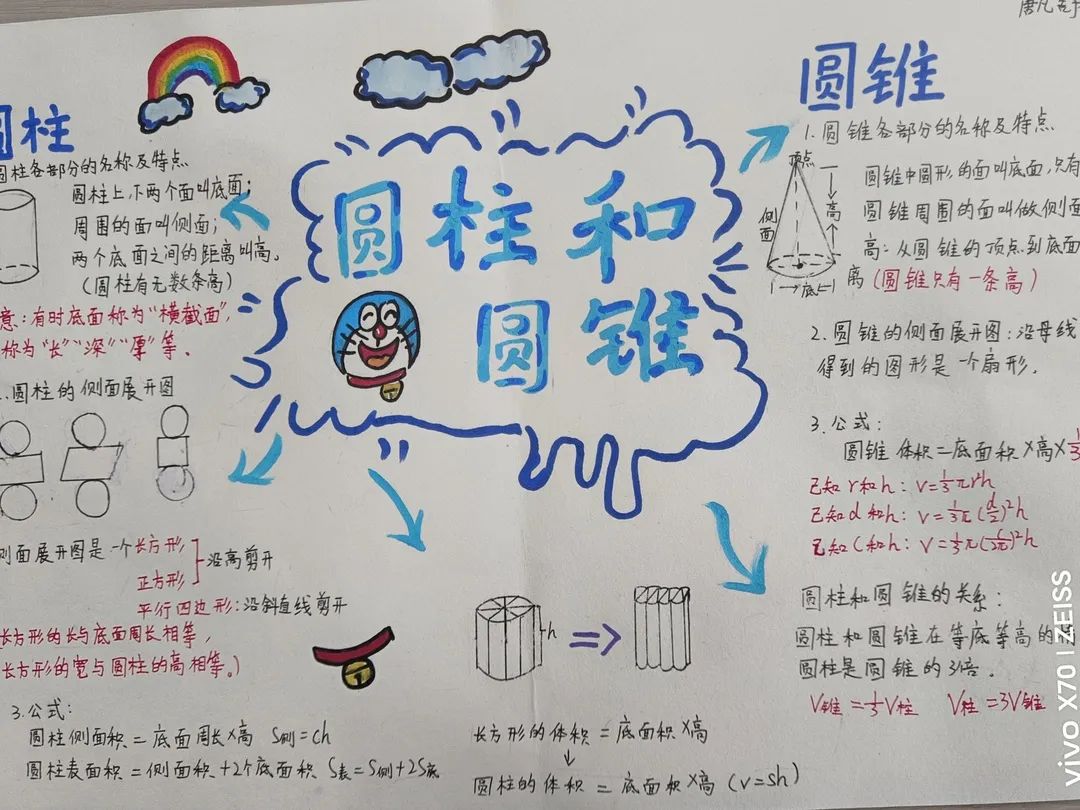 圆柱
圆柱各部分的名称及特点
圆柱上,下两个面叫底面;
周围的面叫侧面;
两个底面之间的距离叫高。
(圆柱有无数条高)
意:有时底面称为“横截面”,
称为“长”“深”“厚”等。
圆柱的侧面展开图
侧面展开图是一个长方形
正方形
沿高剪开
平行四边形:沿斜直线剪开
长方形的长与底面周长相等,
长方形的宽与圆柱的高相等。)
3.公式:
圆柱侧面积=底面周长×高 S侧=ch
圆柱表面积=侧面积+2个底面积 S表=S侧+2S底
圆柱和
圆锥
h
长方形的体积=底面积×高
圆柱的体积=底面积×高(v=sh)
圆锥
1.圆锥各部分的名称及特点
顶点
侧面
高
底
圆锥中圆形的面叫底面,只有
圆锥周围的面叫做侧面
高:从圆锥的顶点到底面
离(圆锥只有一条高)
2.圆锥的侧面展开图:沿母线
得到的图形是一个扇形.
3.公式:
圆锥体积=底面积×高×1/3
已知r和h:V=1/3πr²h
已知d和h:V=1/3π(d/2)²h
已知C和h:V=1/3π(C/2π)²h
圆柱和圆锥的关系:
圆柱和圆锥在等底等高的
圆柱是圆锥的3倍.
V锥=1/3V柱 V柱=3V锥
vivo X70 | ZEISS